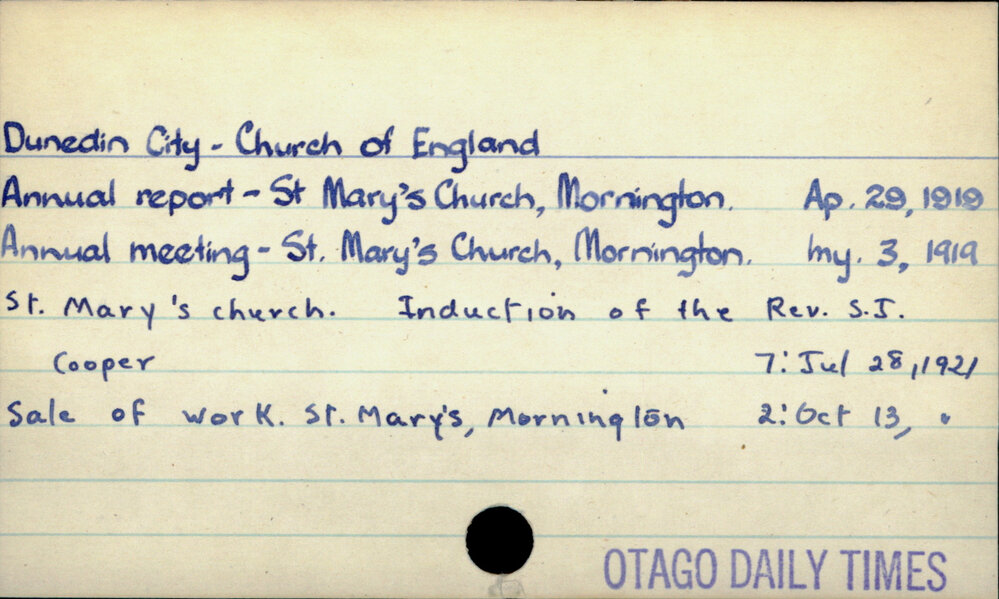 Dunedin City - Church of England
Annual report - St Mary's Church, Mornington. Ap. 29, 1919
Annual meeting - St. Mary's Church, Mornington. My. 3, 1919
St. Mary's church. Induction of the Rev. S.J.
Cooper 7: Jul 28, 1921
Sale of work. St. Mary's, Mornington 2: Oct 13, "
OTAGO DAILY TIMES